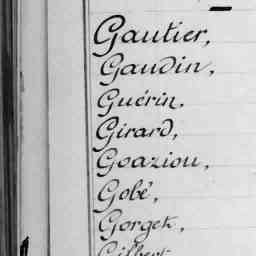 Gautier,
Gaudin,
Guérin,
Girard,
Goaziou,
Gobé,
Gorget,
Gilbert